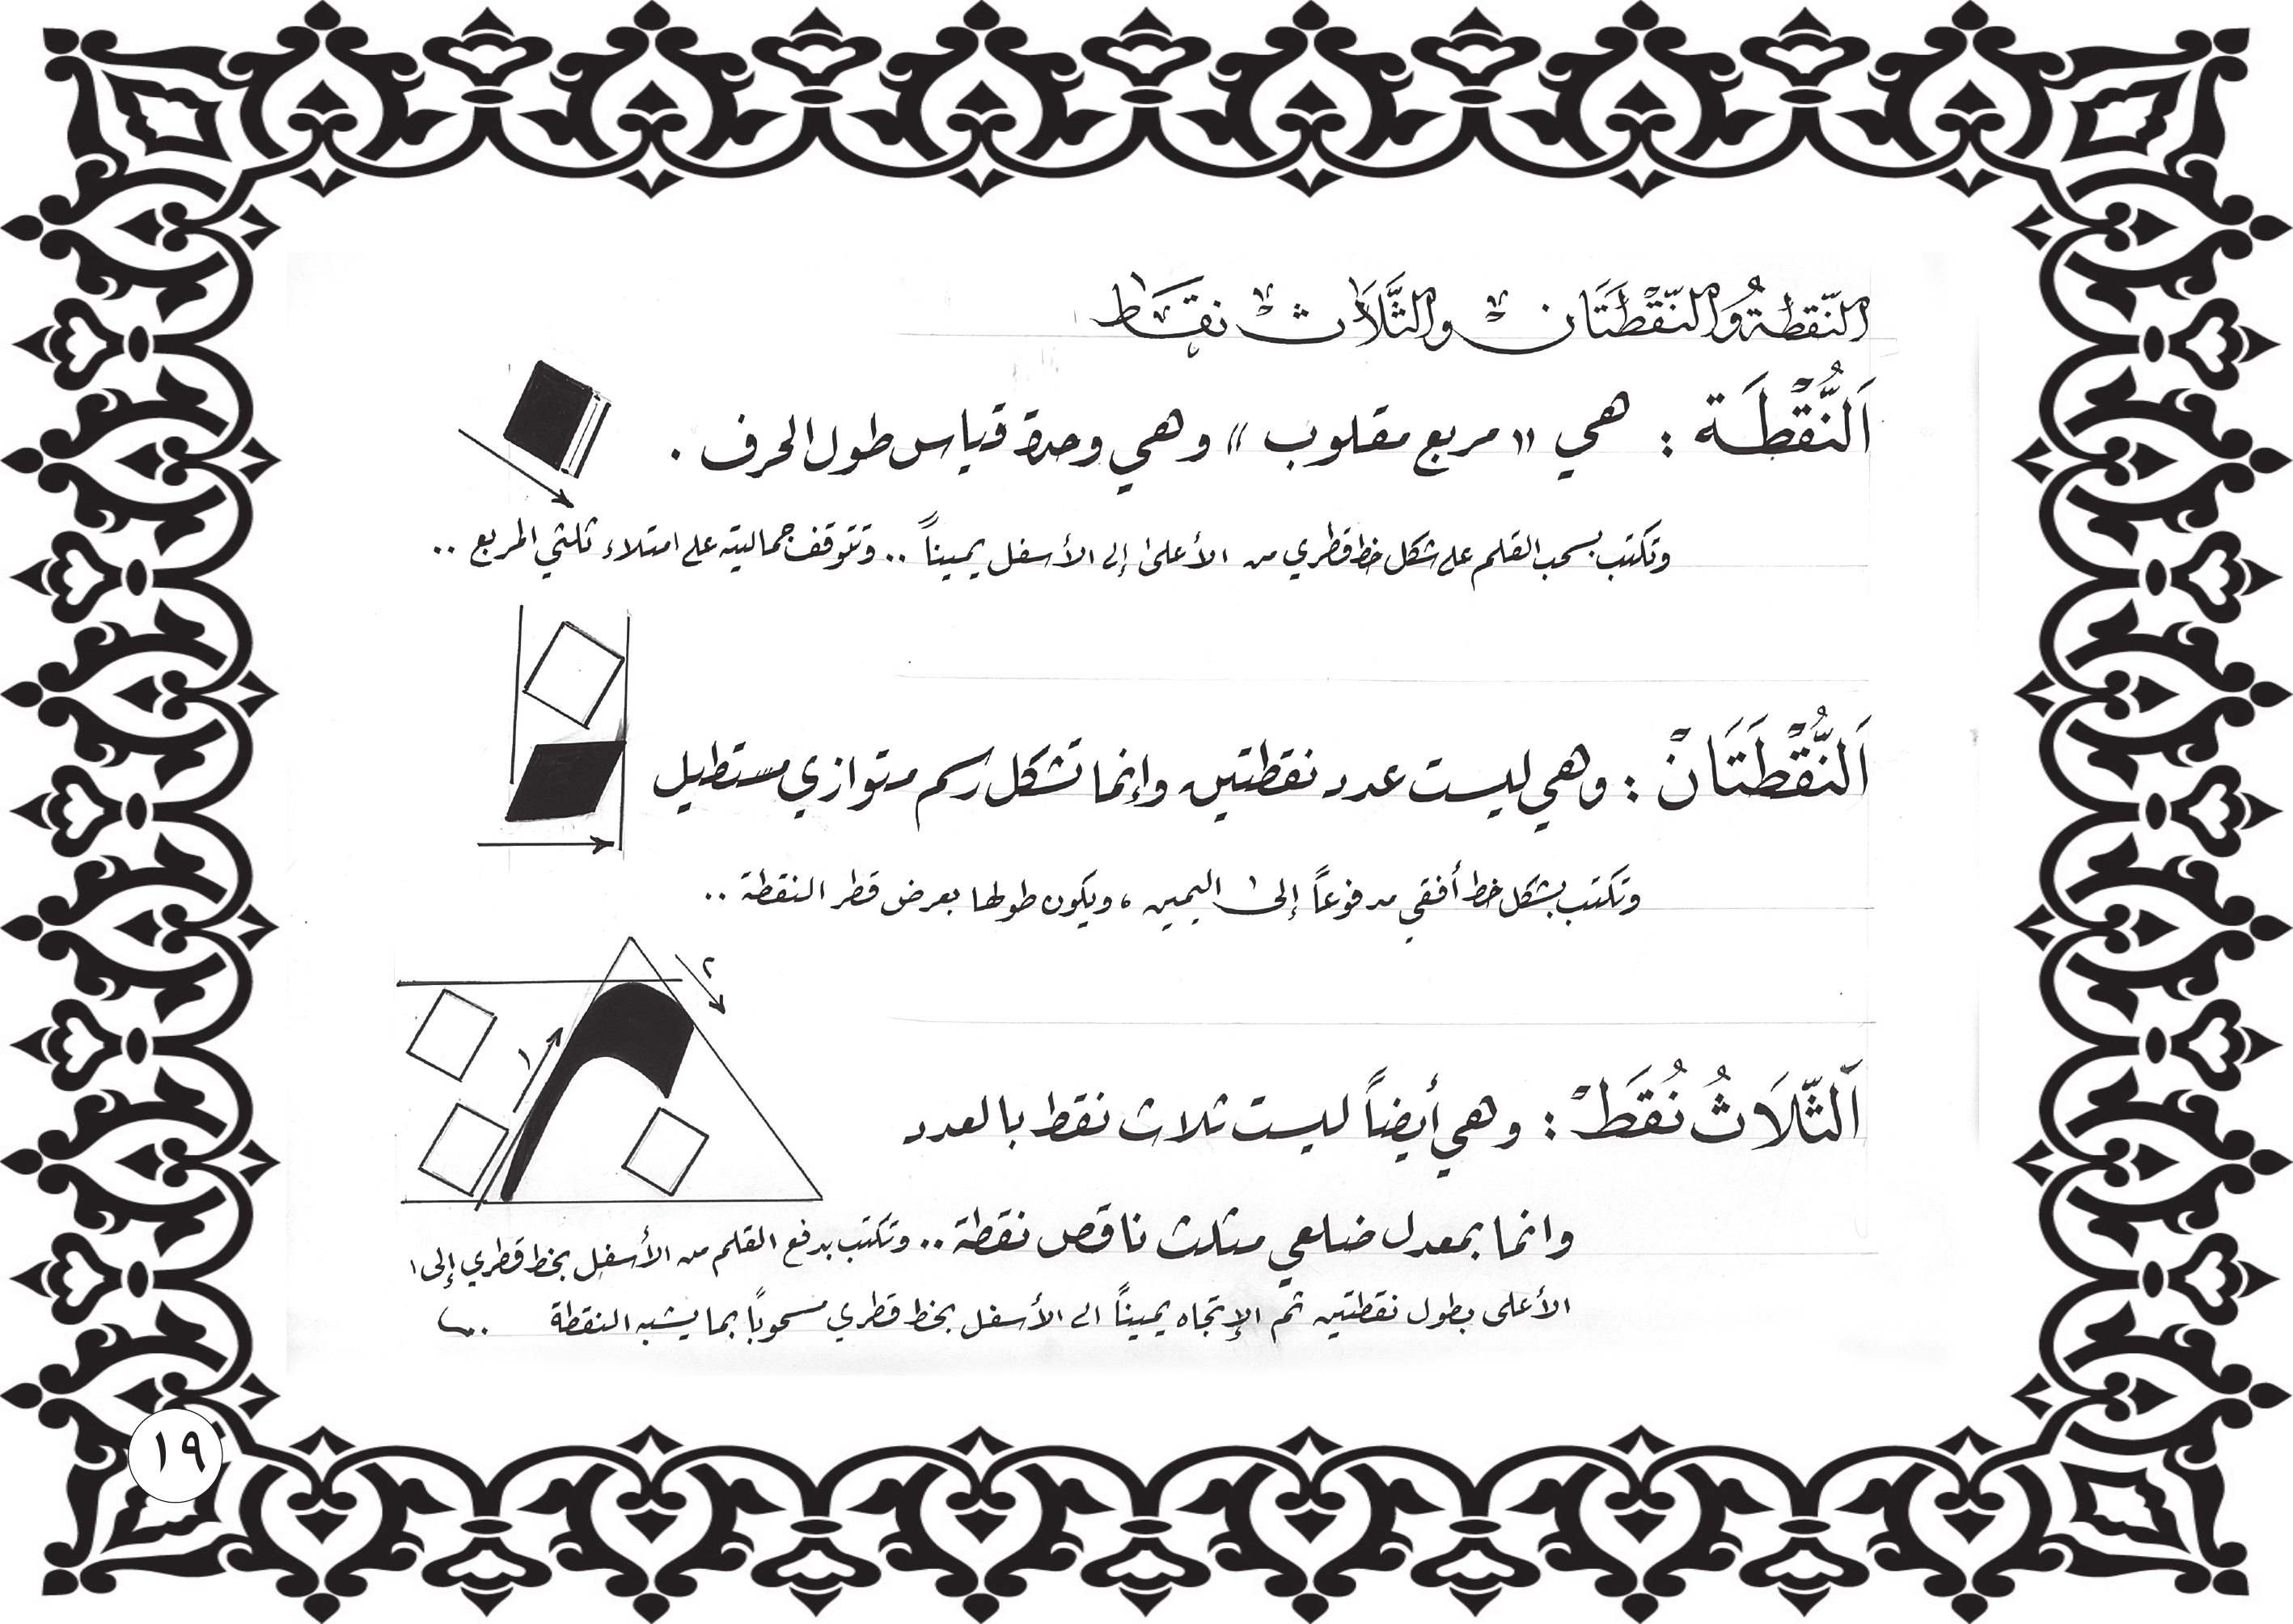 النّقطةُ والنّقْطَتَان والثَّلَاث نقَاط
اَلنُّقْطَة : هي « مربع مقلوب » وهي وحدة قياس طول الحرف .
وتكتب بسحب القلم على شكل خط قطري من الأعلى إلى الأسفل يميناً .. وتتوقف جماليته على امتلاء ثلثي المربع ..
اَلنُّقْطَتَانْ : وهي ليست عدد نقطتين وإنما تشكل رسم متوازي مستطيل
وتكتب بشكل خط أفقي مدفوعاً إلى اليمين ، ويكون طولها بعرض قطر النقطة ..
٢
١
اَلثّلَاثُ نُقَطْ : وهي أيضاً ليست ثلاث نقط بالعدد
وانما بمعدل ضلعي مثلث ناقص نقطة .. وتكتب بدفع القلم من الأسفل بخط قطري إلى
الأعلى بطول نقطتين ثم الإتجاه يميناً الى الأسفل بخط قطري مسحوباً بما يشبه النقطة ..
١٩